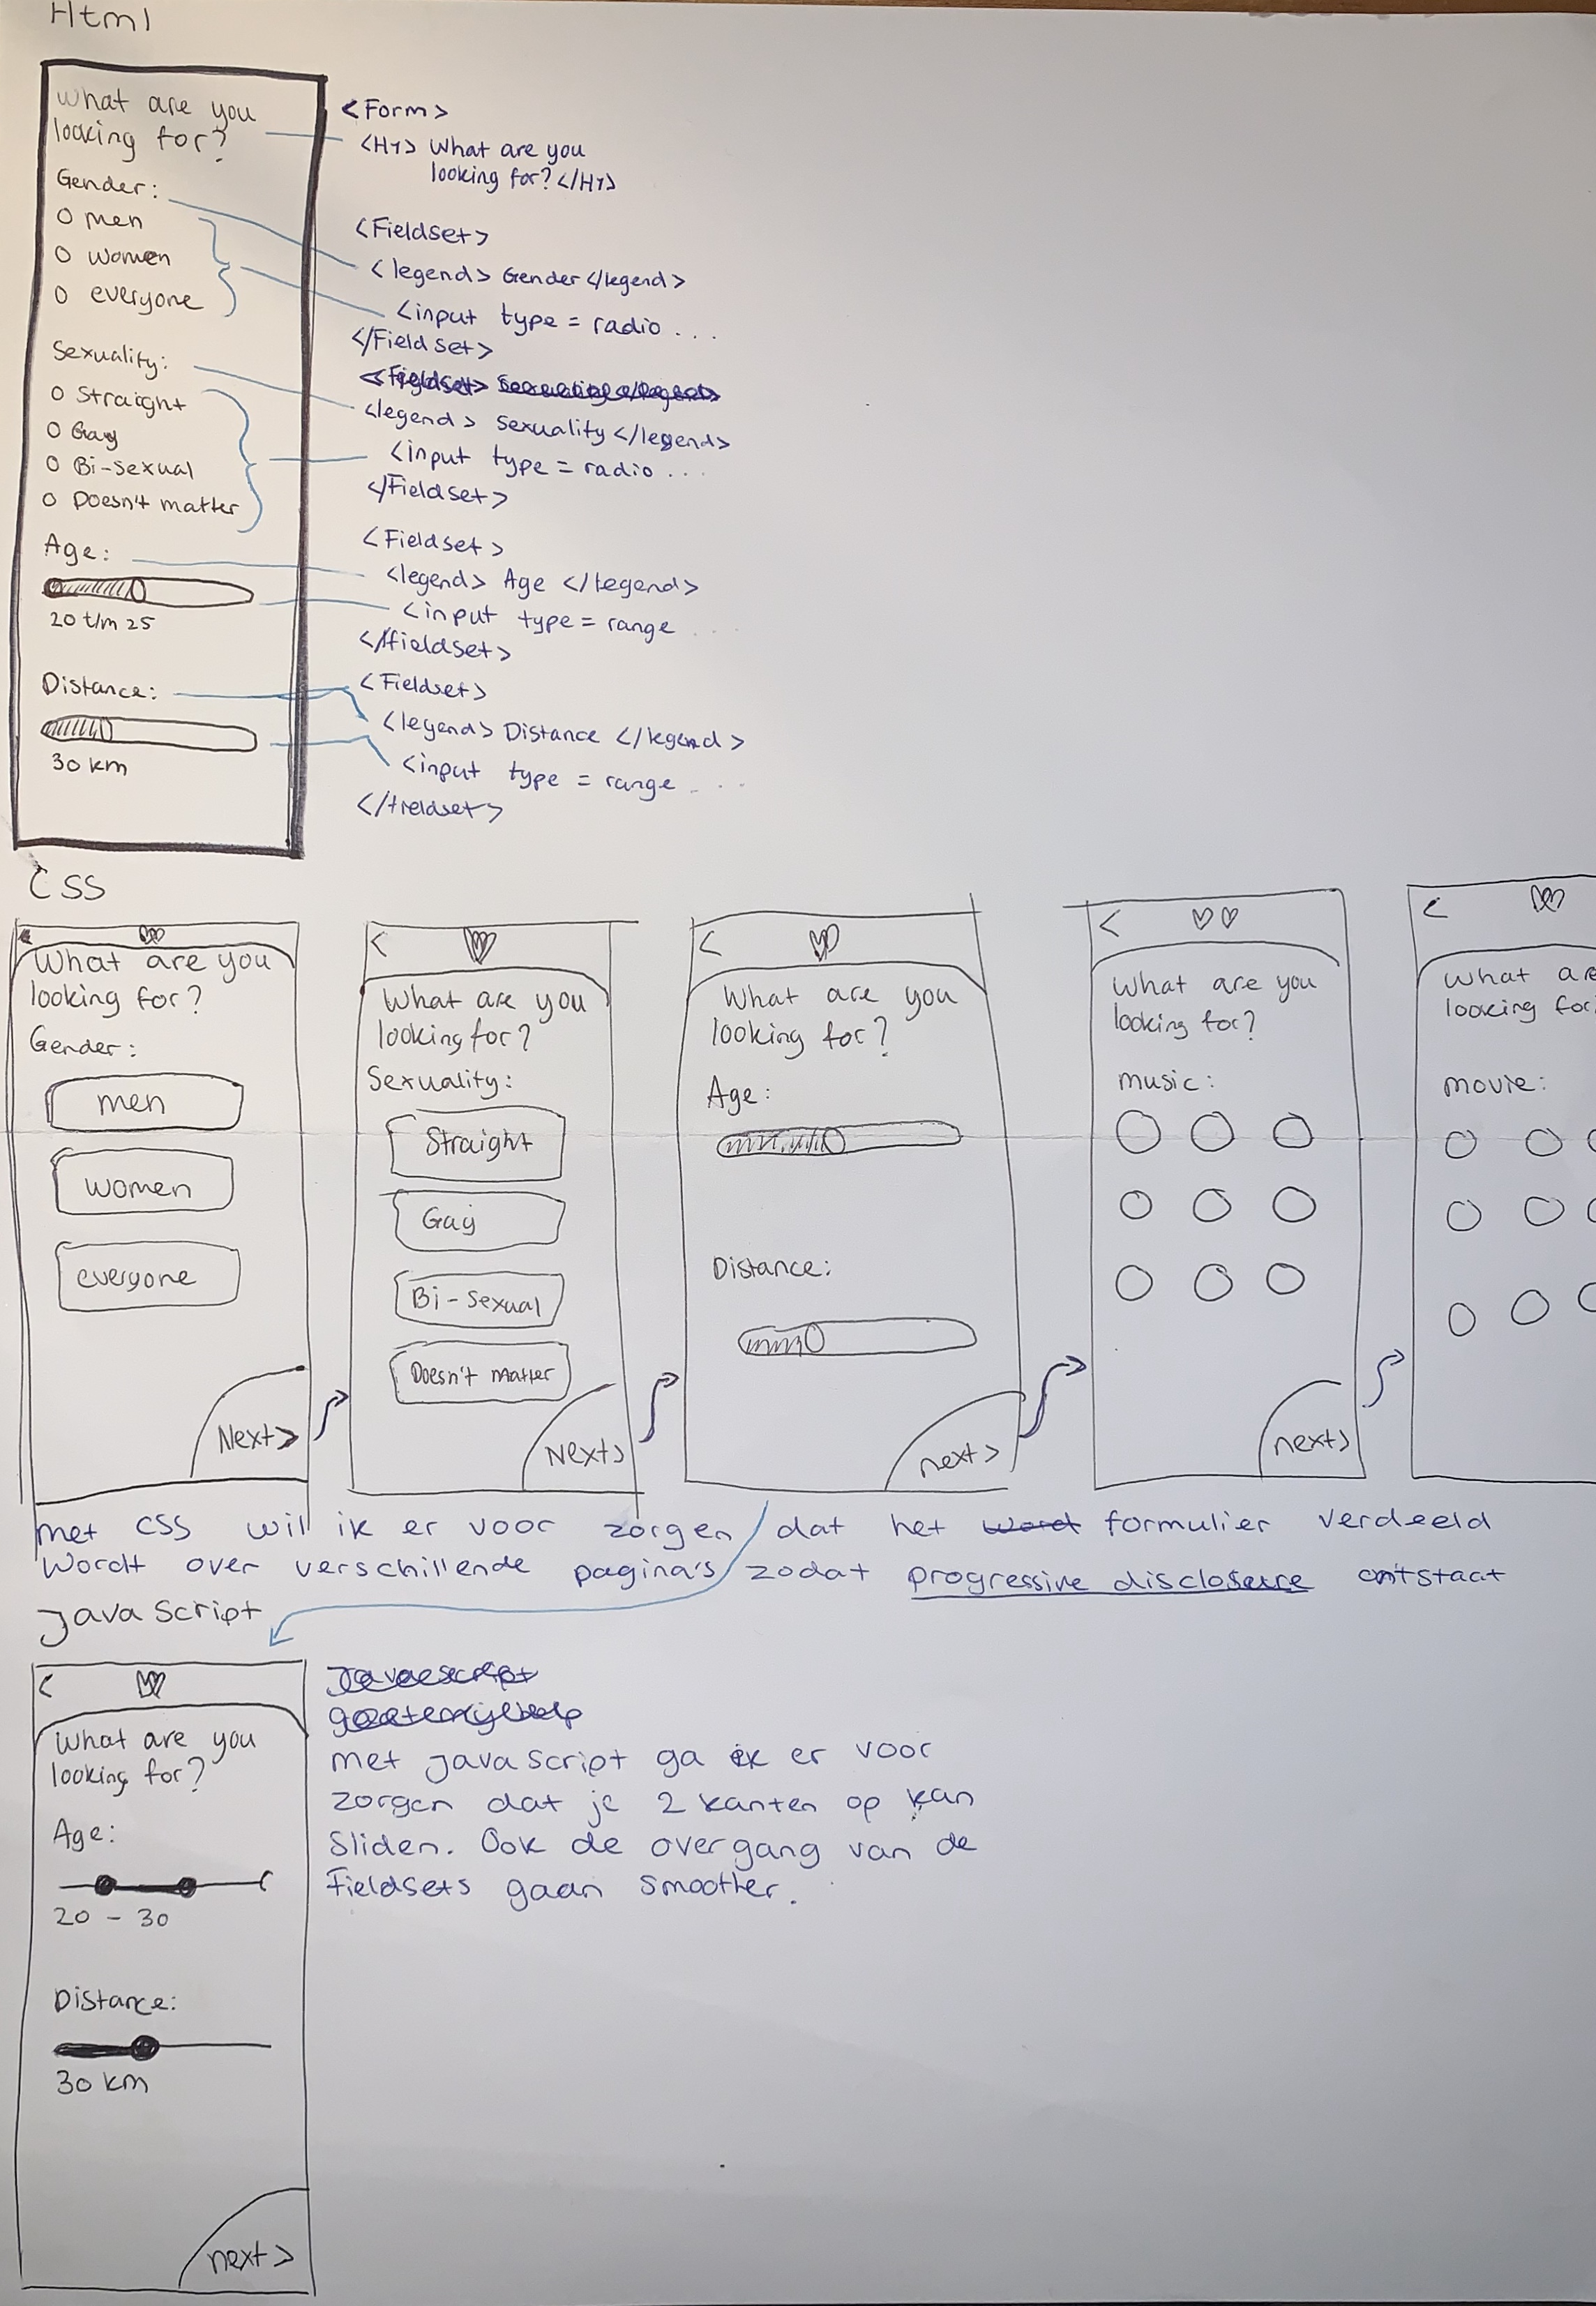 Html
What are you
looking for?
Gender:
O men
O women
O everyone
Sexuality:
O Straight
O Gay
O Bi-sexual
O Doesn't matter
Age:
20 t/m 25
Distance:
30 km
<Form>
<H1> What are you
looking for? </H1>
<Fieldset>
<legend> Gender </legend>
<input type = radio ...
</Fieldset>
<legend> Sexuality </legend>
<input type = radio ...
</Fieldset>
<Fieldset>
<legend> Age </legend>
<input type = range ...
</fieldset>
<Fieldset>
<legend> Distance </legend>
<input type = range ...
</fieldset>
CSS
<
What are you
looking for?
Gender:
men
women
everyone
Next>
<
What are you
looking for?
Sexuality:
Straight
Gay
Bi-sexual
Doesn't matter
Next>
<
What are you
looking for?
Age:
Distance:
next>
<
What are you
looking for?
music:
next>
<
What are
looking for
movie:
met css wil ik er voor zorgen dat het word formulier verdeeld
wordt over verschillende pagina's zodat progressive disclosure ontstaat
Javascript
<
What are you
looking for?
Age:
20 - 30
Distance:
30 km
next>
met javascript ga ik er voor
zorgen dat je 2 kanten op kan
sliden. Ook de overgang van de
fieldsets gaan smoother.